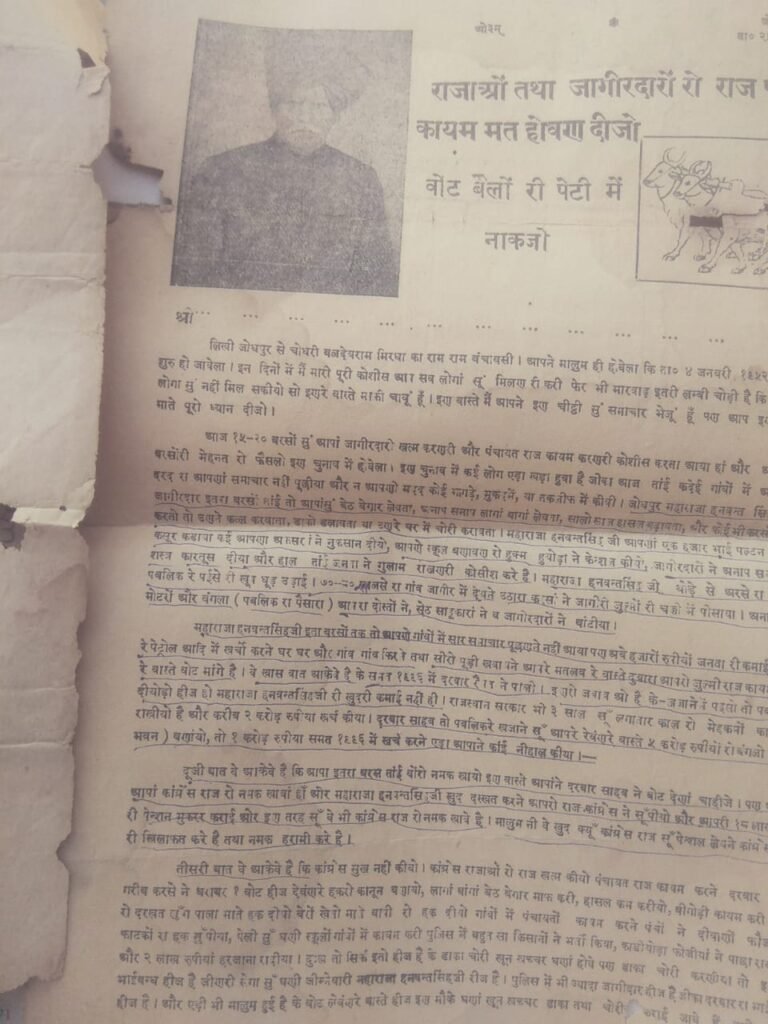 ओ३म्
राजाओं तथा जागीरदारों रो राज
कायम मत होवण दीजो
वोट बैलों री पेटी में
नाकजो
श्री
लिखी जोधपुर से चोधरी बलदेवराम मिरधा का राम राम बंचावसी । आपने मालुम ही हेवेला कि ता० ४ जनवरी, १९५२
शुरु हो जावेला । इन दिनों में मैं मारी पूरी कोशीस आप सब लोगां सूं मिलण री करी फेर भी मारवाड़ इतरी लम्बी चोड़ी है कि
लोगा सुं नहीं मिल सकीयो सो इणरे वास्ते माफी चावूं हूँ । इण वास्ते मैं आपने इण चीट्ठी सुं समाचार भेजूं हूँ पण आप
माते पूरो ध्यान दीजो ।
आज १५-२० बरसों सुं आपां जागीरदारी खत्म करणरी और पंचायत राज कायम करणरी कोशीस करता आया हां और
बरसोंरी मेहनत रो फैसलो इण चुनाव में हेवेला । इण चुनाव में कई लोग एड़ा खड़ा हुवा है जोका आज तांई कदेई गांवों में
दरद रा आपणां समाचार नहीं पूछीया और न आपणो मदद कोई झगड़े, मुकदमें, या तकलीफ में कीवी । जोधपुर महाराजा हनवन्त
जागीरदार इतरा बरसां तांई तो आपांसुं बेठ बेगार लेवता, अनाप सनाप लागां बागां लेवता,
करतो तो उणने कत्ल करवाता, डाको डलावता या उणरे घर में चोरी करावता । महाराजा हनवन्तसिंहजी आपणां एक हजार भाई पल्टन
कसूर कडाया कई आपणा अफसरां ने नुकसान दीयो, आपणे स्कूल बणावण रो हुक्म हुवोड़ा ने केन्सल कीयो, जागीरदारों ने अनाप
शस्त्र कारतूस दीया और हाल तांई जनता ने गुलाम राखणरी कोसीश करे है । महाराजा हनवन्तसिंह जी थोड़े से अरसे
पबलिक रे पईसे री खूब धूड़ उड़ाई । ७०-८० खालसे रा गांव जागीर में देयने उठारा करसां ने जागीरी जुल्मों री चक्की में पीसाया ।
मोटरों और बंगला ( पबलिक रा पैसारा ) आपरा दोस्तों ने, सेठ साहूकारां ने व जागीरदारों ने बांटीया ।
महाराजा हनवन्तसिंहजी इता बरसों तक तो आपणे गांवों में सार समाचार पूछणने नहीं आया पण अबे हजारों रुपीयों जनता री कमाई
रे पेट्रोल आदि में खर्चो करने घर घर और गांव गांव फिरे तथा सीरो पूड़ी खवावने आपरे मतलब रे वास्ते दुबारा आपरो जुल्मी राज
रे वास्ते वोट मांगे है । वे खास बात आकेवे है के समत १९९६ में दरबार
हीज ही महाराजा हनवन्तसिंहजी री खुदरी कमाई नहीं ही । राजस्थान सरकार भी ३ साल सूं लगातार काल रो मेहकमों
राखीयो है और करीब २ करोड़ रुपीया खर्च कीया । दरबार साहब तो पबलिकरे खजाने सूं आपरे रेवणरे वास्ते ५ करोड़ रुपीयों रो बंगलो
भवन ) बणायो, तो १ करोड़ रुपीया समत १९९६ में खर्च करने एड़ा आपाने कांई नीहाल कीया ।—
दूजी बात वे आकेवे है कि आपा इतरा बरस तांई वोंरो नमक खायो इण वास्ते आपांने दरबार साहब ने वोट देणां चाहीजे । पण
आपां कांग्रेस राज रो नमक खावां हाँ और महाराजा हनवन्तसिंहजी खुद दस्खत करने आपरो राज कांग्रेस ने सूंपीयो और आपरी १८ लाख
री पेन्शन मुकरर कराई और इण तरह सूं वे भी कांग्रेस राज रो नमक खावे है । मालुम नी वे खुद क्यूं कांग्रेस राज सूं पेन्शन लेयने कांग्रेस
री खिलाफत करे है तथा नमक हरामी करे है ।
तीसरी बात वे आकेवे है कि कांग्रेस सुख नहीं कीयो । कांग्रेस राजाओं रो राज खत्म कीयो पंचायत राज कायम करने दरबार
गरीब करसे ने बराबर १ वोट हीज देवणरे हकरो कानून बणायो, लागां बागां बेठ बेगार माफ करी, हासल कम करीयो, बीगोड़ी कायम करी
रो दरखत पाला माते हक दीयो रो हक दीयो गांवों में पंचायतों कायम करने पंचों ने दीवाणी
रा हक सूंपीया, पेलो सूं घणी स्कूलों गांवों में कायम करी पुलिस में बहुत सा किसानों ने भर्ती किया,
और २ लाख रुपीयां हरजाना राखीया । दुःख तो सिर्फ इतो हीज है के डाका चोरी खून खच्चर घणां होवे पण डाका चोरी करणीया तो
भाईबन्ध हीज है जीणरी सूं घणी जीम्मेवारी महाराजा हनवन्तसिंहजी रीज है । पुलिस में भी ज्यादा जागीरदार हीज है
हीज है । और एड़ी भी मालुम हुई है के वोट लेवणरे वास्ते हीज इण मौके घणां खून खच्चर डाका तथा चोरी कराई जावे